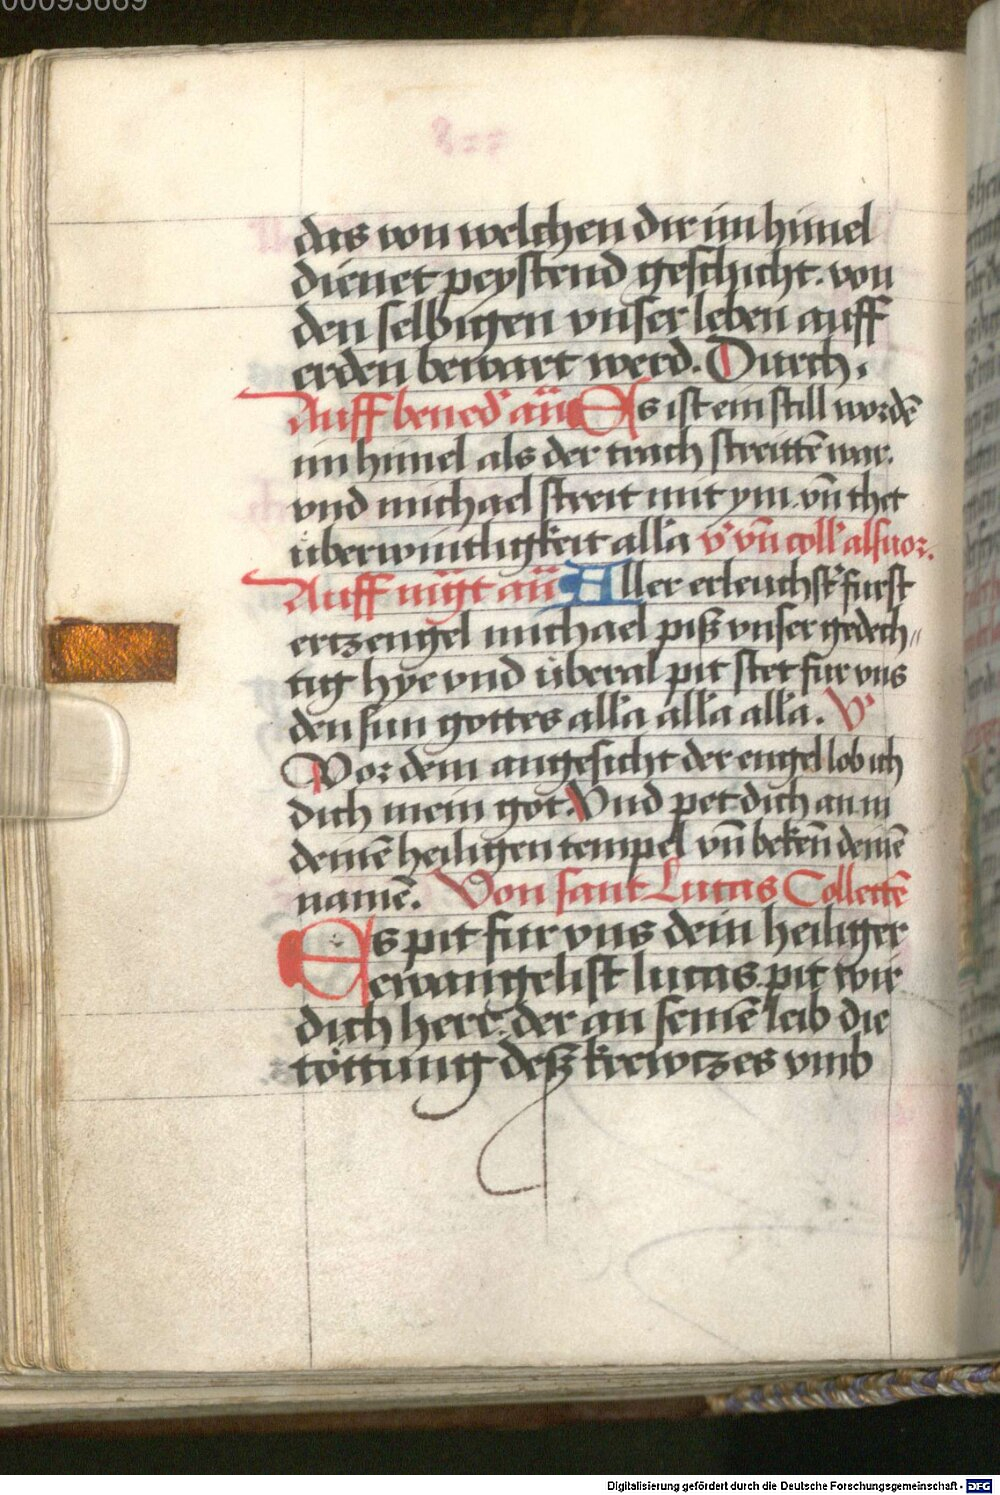 00093669
das von welchen dir im himel
dienet peystend geschicht. von
den selbigen vnser leben auff
erden bewart werd. Durch.
Auff bened' añ Es ist ein still wordē
im himel als der trach streittē war.
vnd michael streit mit ym. vñ thet
überwintligkeit alla v' vñ coll' als uor.
Auff mgt añ Aller erleuchst' furst
ertzengel michael piß vnser gedech„
tig hye vnd überal pit stet fur vns
den sun gottes alla alla alla. V'
Vor dem angesicht der engel lob ich
dich mein got. Vnd pet dich an in
deinē heiligen tempel vñ bekeñ deinē
namē. Von sant Lucas Collectē
Es pit fur vns dein heiliger
ewangelist lucas. pit wir
dich herē. der an seinē leib die
töttung deß krewtzes vmb
Digitalisierung gefördert durch die Deutsche Forschungsgemeinschaft - DFG